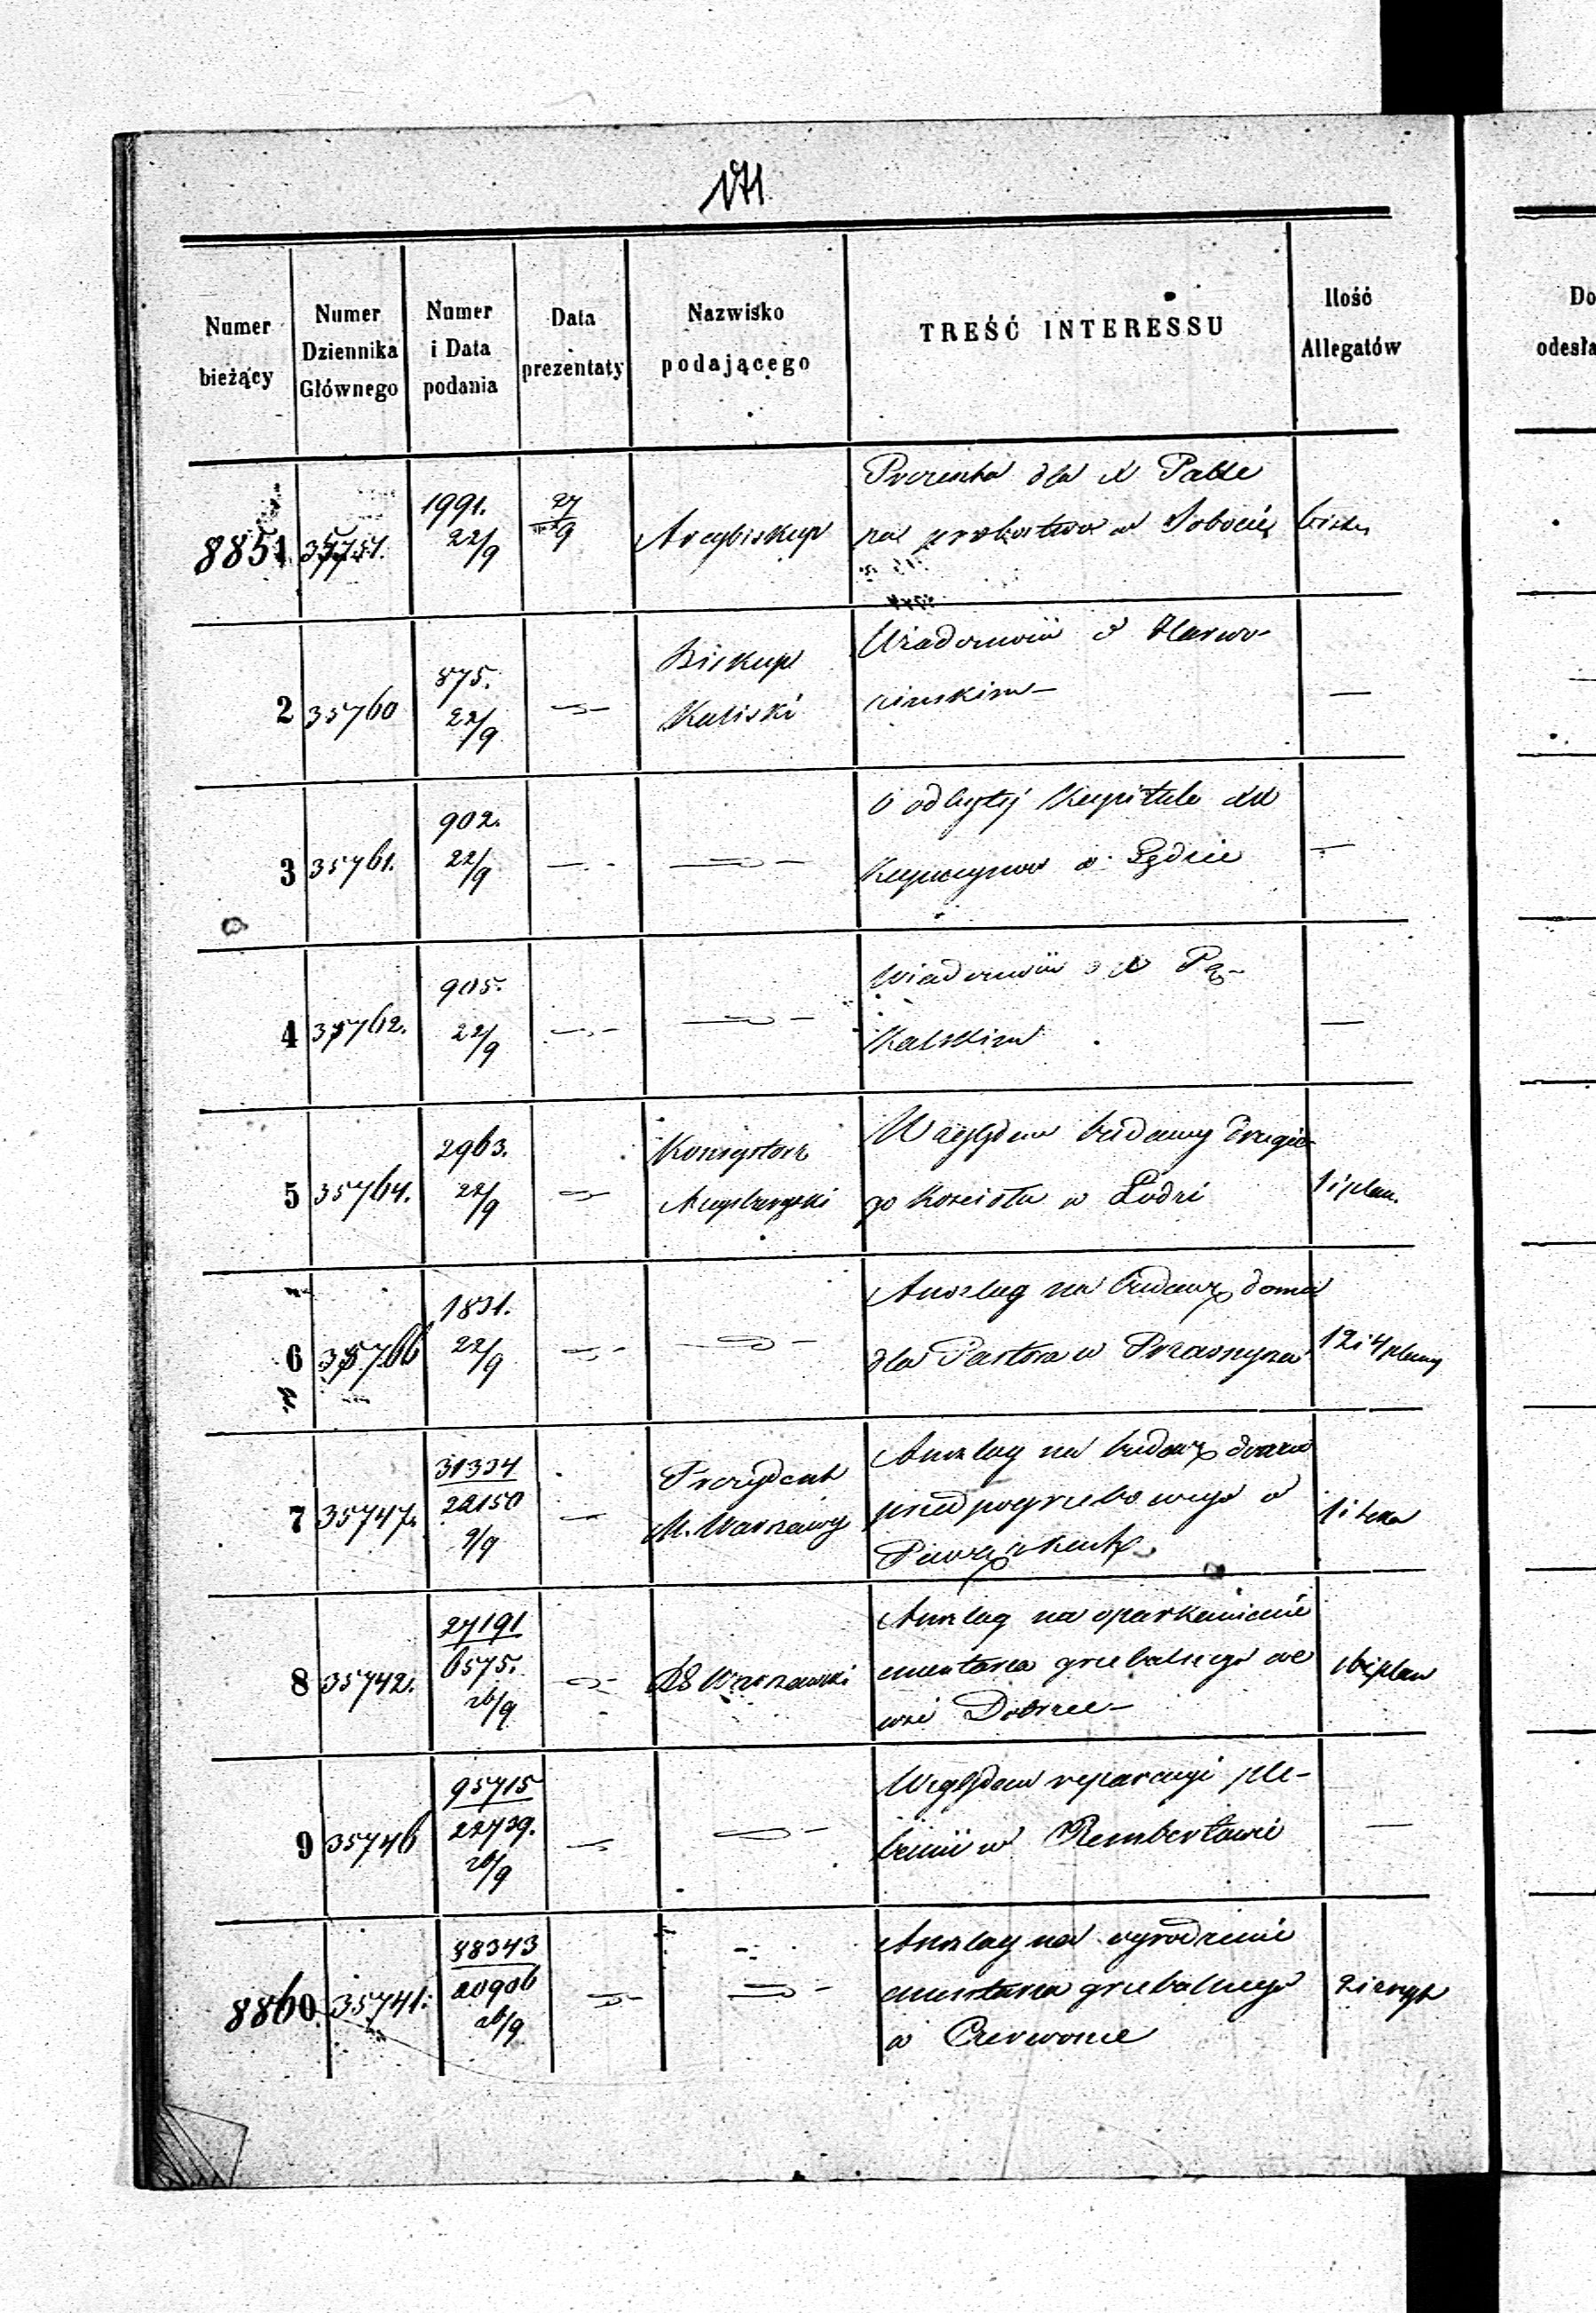 Numer
bieżący
Numer
Dziennika
Głównego
Numer
i Data
podania
Data
prezentaty
Nazwisko
podającego
TREŚĆ INTERESSU
Ilość
Allegatów
Do
odesła
8851
35751.
1991.
22/9
27/9
Arcybiskup
Prezenta dla X
na probostwo w Sobocie
2
35760
875.
22/9
Biskup
Kaliski
Wiadomość o
3
35761.
902.
22/9
O odbytej Kapitule XX
Kapucynów w Lędzie
4
35762.
905.
22/9
Wiadomość o X
5
35764.
2963.
22/9
Konsystorz
Augsburgski
Względem budowy drugie-
go Kościoła w Łodzi
1 i plan.
6
35766
1831.
22/9
Anszlag na budowę domu
dla Pastora w Przasnyszu
12 i 4 plany
7
35747.
31334
22150
9/9
Prezydent
M. Warszawy
Anszlag na budowę domu
przedpogrzebowego
Powązkach
8
35742.
27191
6575.
26/9
RG Warszawski
Anszlag na oparkanienie
cmentarza grzebalnego we
wsi Dobrze
9
35746
95715
22739.
26/9
Względem reparacyi ple-
banii w Rembertowie
8860.
35741.
88343
20906
26/9
Anszlag na ogrodzenie
cmentarza grzebalnego
w Czerwonce